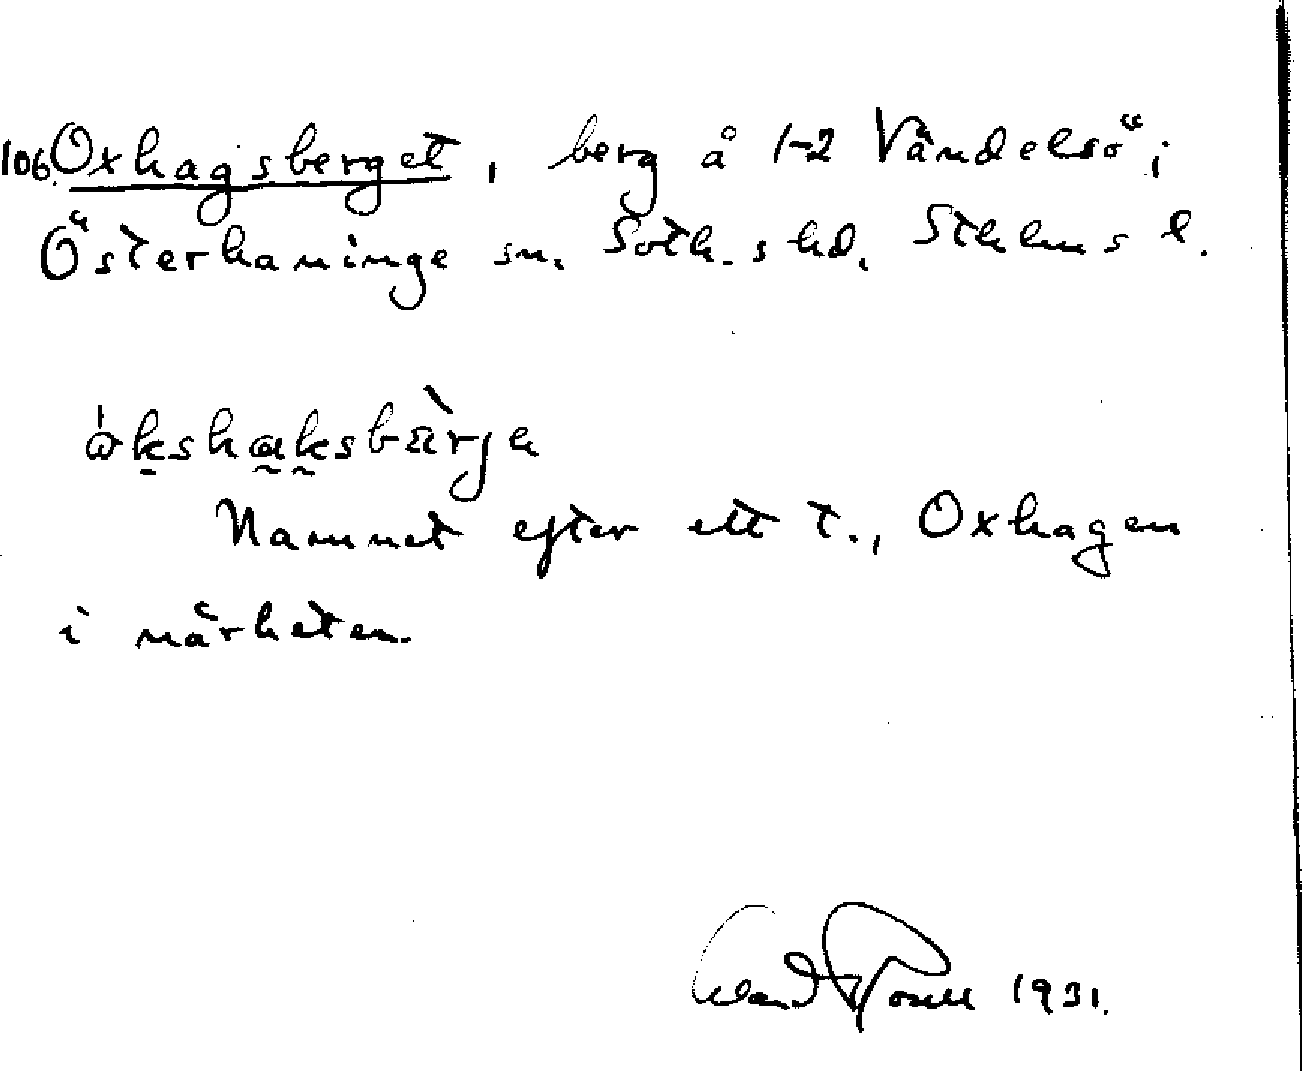 106. Oxhagsberget, berg å 1-2 Vändelsö i
Österhaninge sn. Soth.s hd. Sthlms l.
ò̍kshaksbàrja
Namnet efter ett t., Oxhagen
i närheten.
1931.